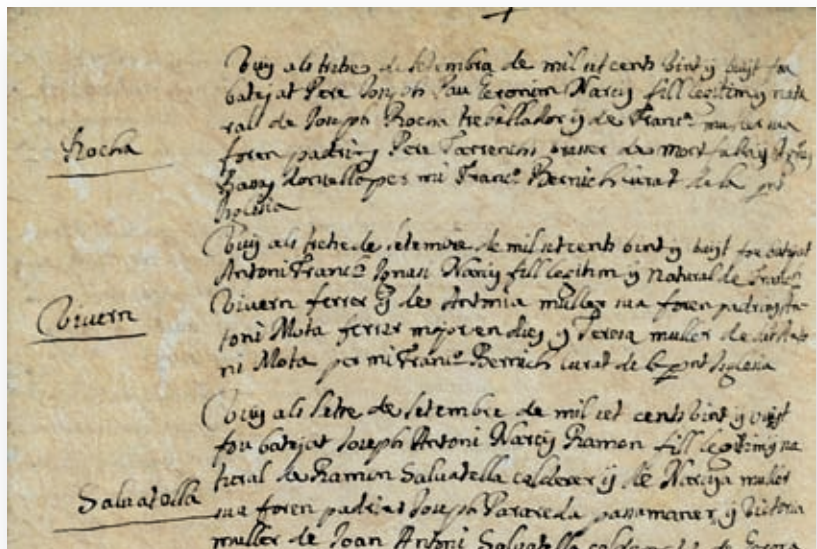 Rocha
Vuy als tretse de setembra de mil set cents vint y vuyt fou
batejat Pere Joseph Pau Geronim Narcis fill legitim y natu
ral de Joseph Rocha treballador y de Franca. muller sua
foren padrins Pere
per mi Franco. Bernich curat de la pnt
Iglesia
Vivern
Vuy als setse de setembre de mil set cents vint y vuyt fou batejat
Antoni Franco. Ignasi Narcis fill legitim y natural de
Vivern ferrer y de Antonia muller sua foren padrins An-
toni Mota ferrer major en dies y Teresa muller de dit Anto
ni Mota per mi Franco. Bernich curat de la pnt Iglesia
Salvatella
Vuy als setse de setembre de mil set cents vint y vuyt
fou batejat Joseph Antoni Narcis Ramon fill legitim y na
tural de Ramon Salvatella calderer y de Narcisa muller
sua foren padrins Joseph Parareda passamaner y Victoria
muller de Joan Antoni Salvatella calderer de Gerona